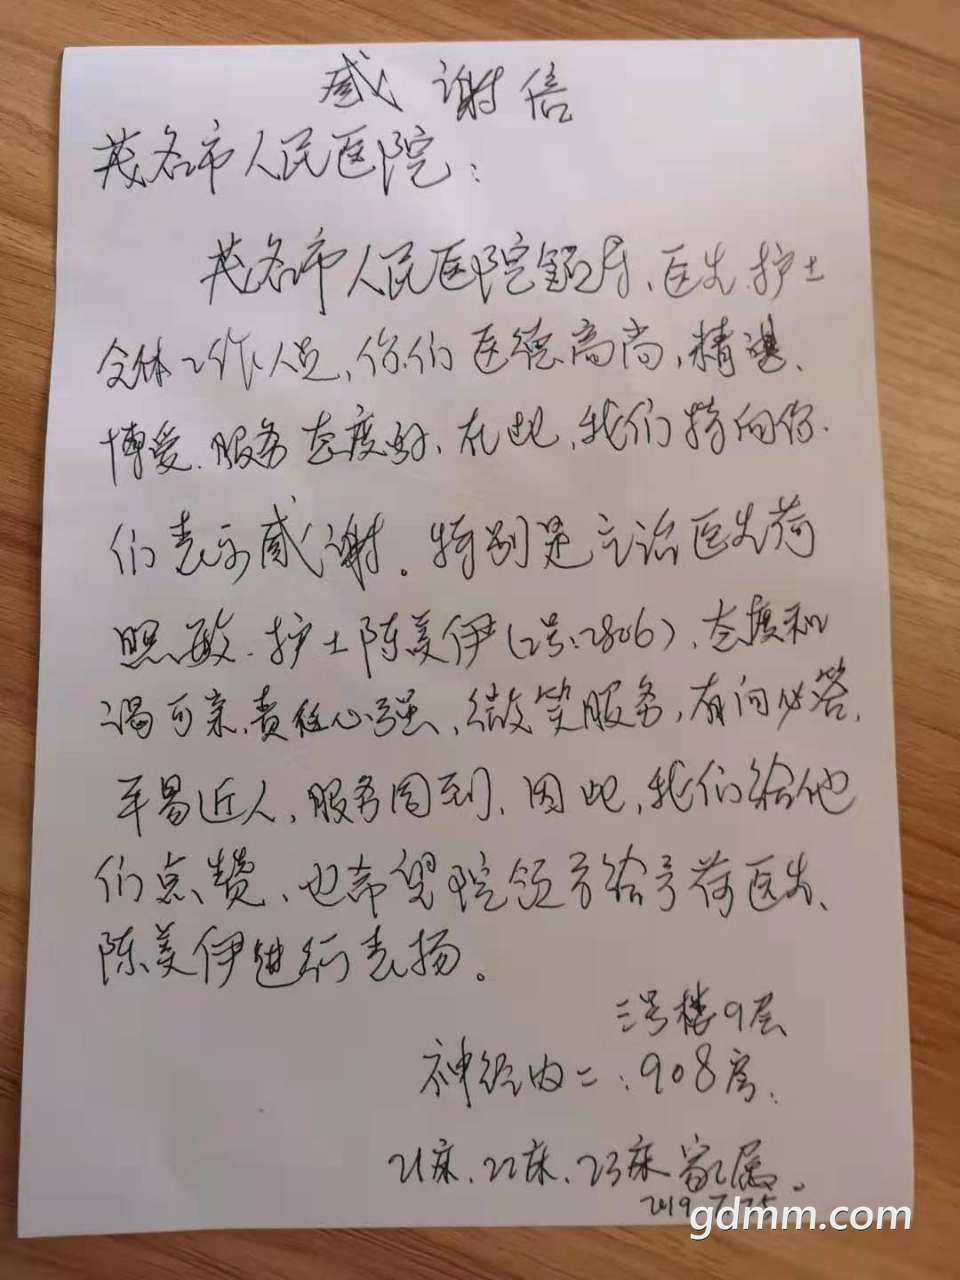 感谢信
茂名市人民医院：
茂名市人民医院领导、医生、护士
全体工作人员，你们医德高尚，精湛、
博爱、服务态度好，在此，我们特向你
们表示感谢。特别是主治医生荷
照敏、护士陈美伊(工号:2806)，态度和
蔼可亲，责任心强，微笑服务，有问必答，
平易近人，服务周到，因此，我们给他
们点赞，也希望院领导给予荷医生、
陈美伊进行表扬。
三号楼9层
神经内二：908房
21床、22床、23床家属。
2019
gdmm.com